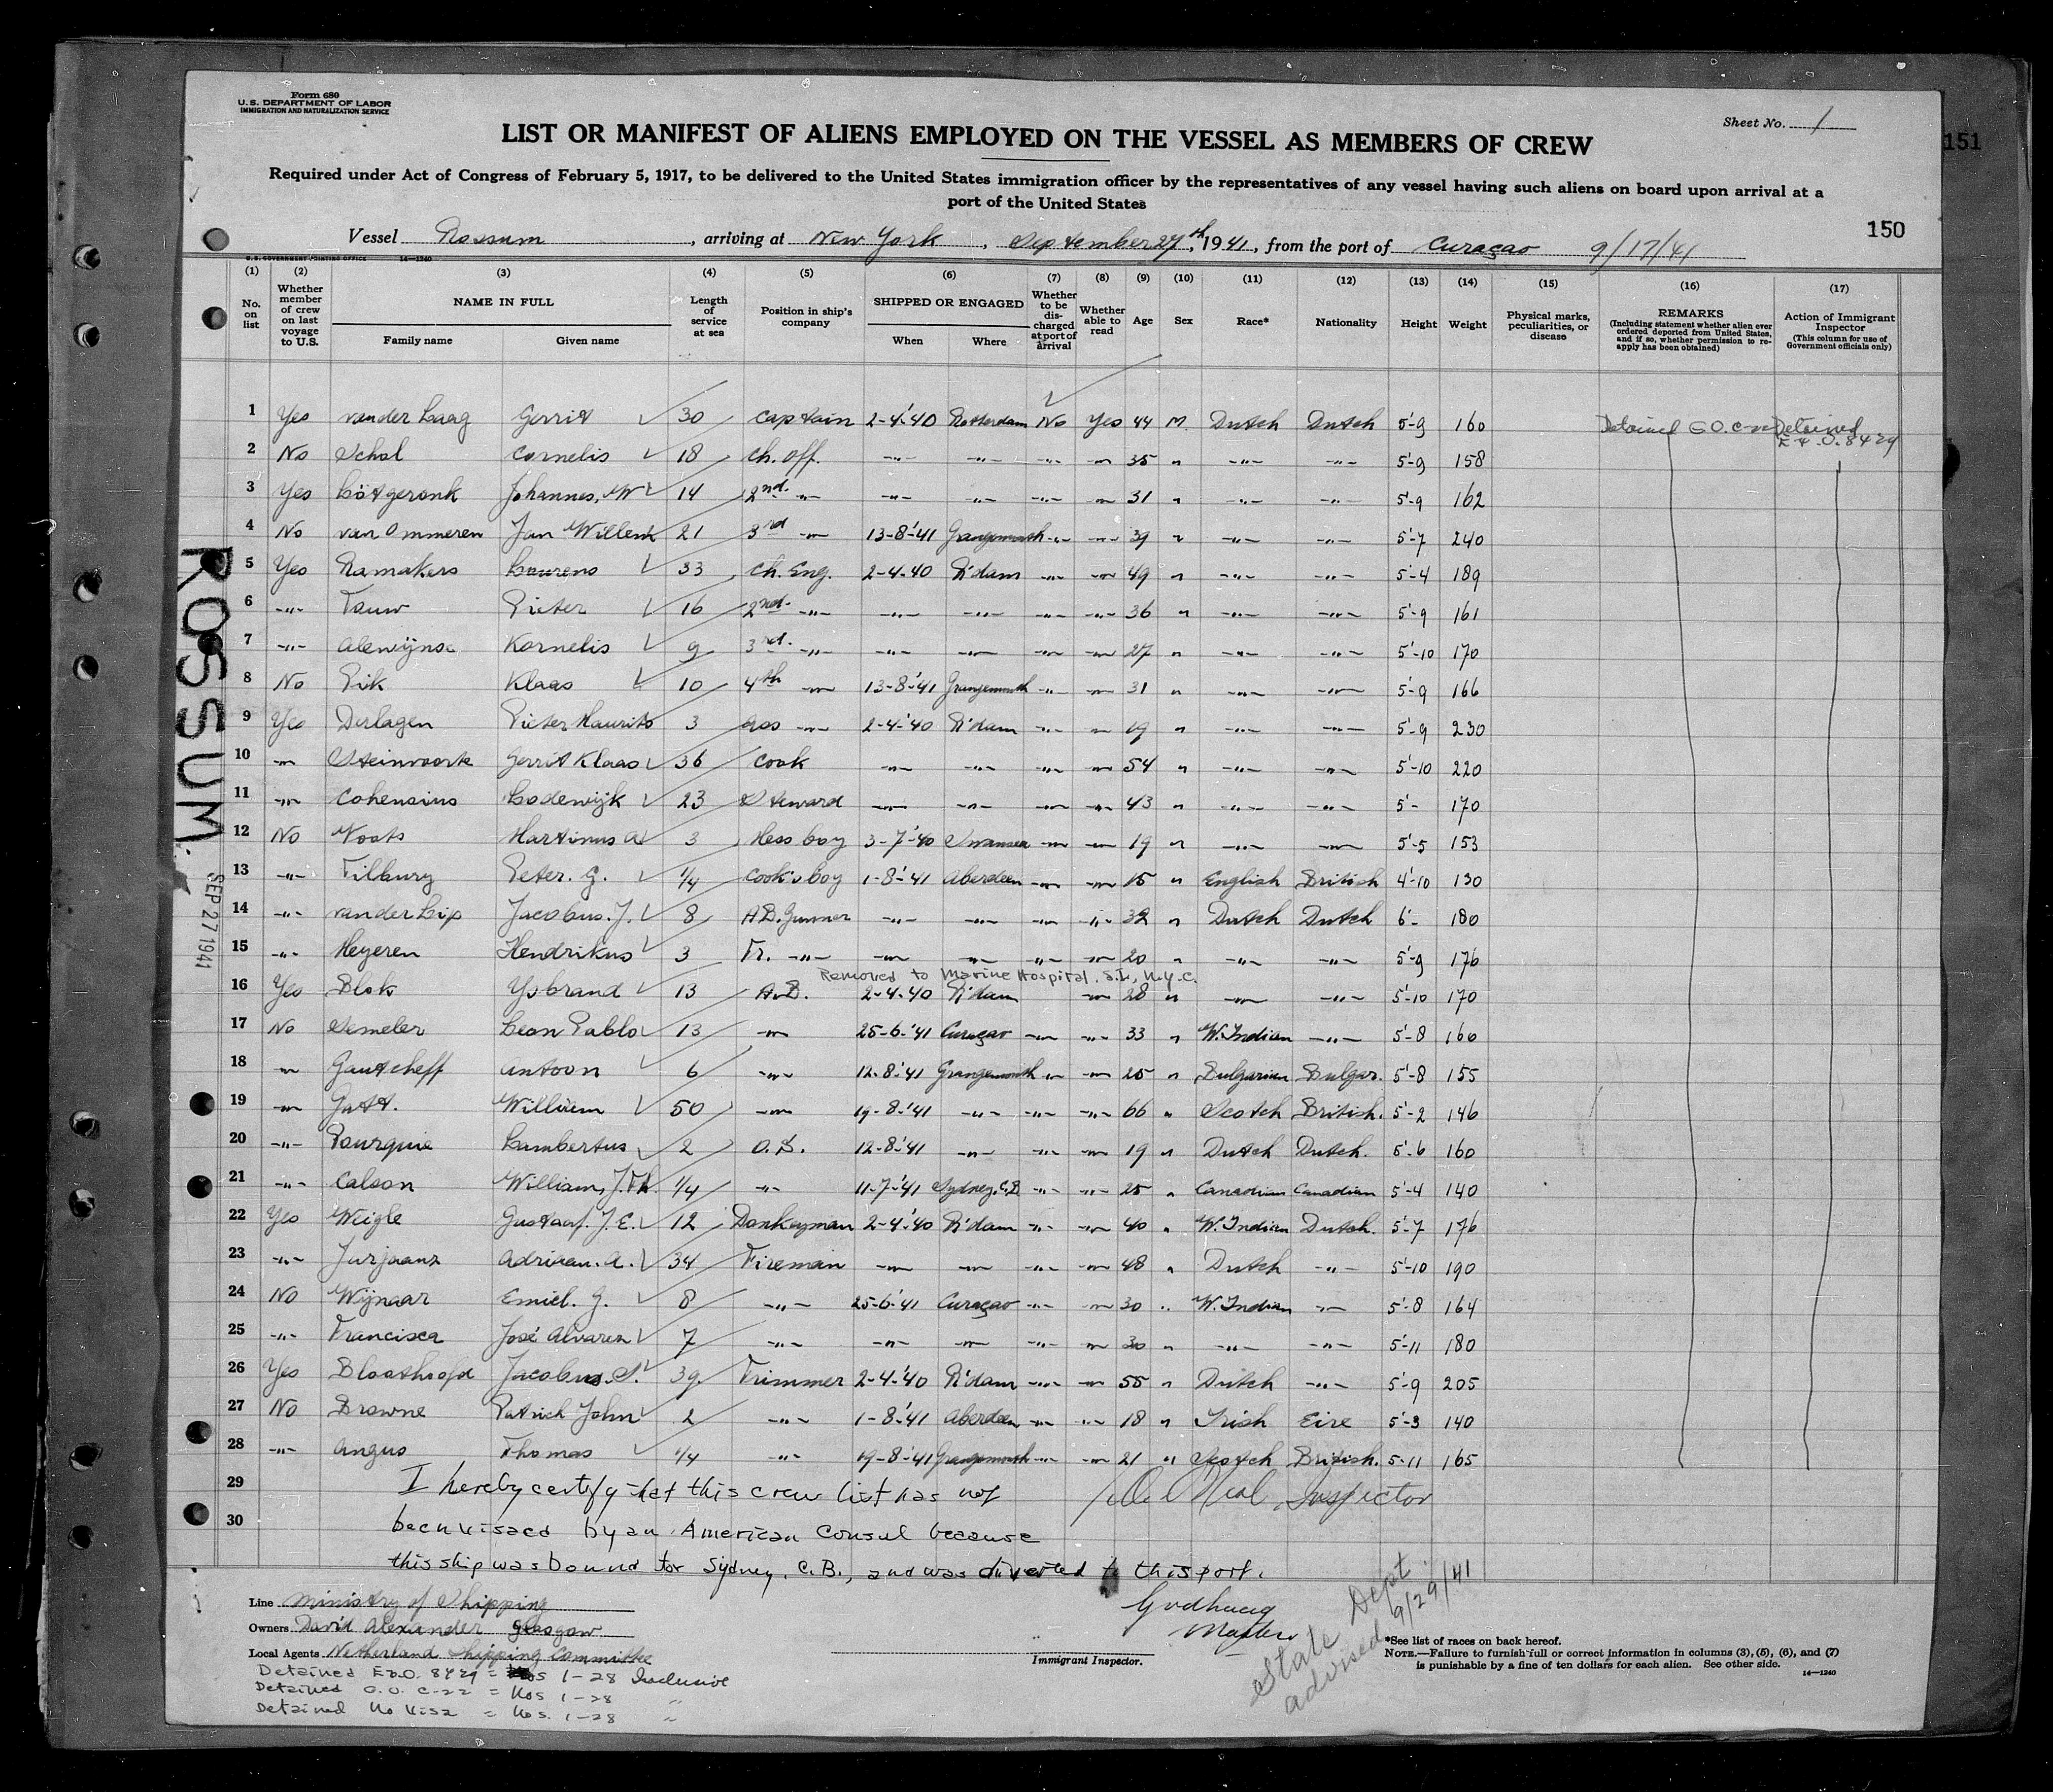 Form 680
U.S. DEPARTMENT OF LABOR
IMMIGRATION AND NATURALIZATION SERVICE
Sheet No. 1
LIST OR MANIFEST OF ALIENS EMPLOYED ON THE VESSEL AS MEMBERS OF CREW
151
Required under Act of Congress of February 5, 1917, to be delivered to the United States immigration officer by the representatives of any vessel having such aliens on board upon arrival at a
port of the United States
150
Vessel Rossum, arriving at New York, September 27th, 1941, from the port of Curaçao 9/17/41
U.S. GOVERNMENT PRINTING OFFICE 14—1240
(1) (2) (3) (4) (5) (6) (7) (8) (9) (10) (11) (12) (13) (14) (15) (16) (17)
No. on list
Whether member of crew on last voyage to U.S.
NAME IN FULL
Family name Given name
Length of service at sea
Position in ship's company
SHIPPED OR ENGAGED
When Where
Whether to be discharged at port of arrival
Whether able to read
Age
Sex
Race*
Nationality
Height
Weight
Physical marks, peculiarities, or disease
REMARKS
(Including statement whether alien ever ordered deported from United States, and if so, whether permission to re-apply has been obtained)
Action of Immigrant Inspector
(This column for use of Government officials only)
1 Yes van der Laag Gerrit 30 Captain 2-4-'40 Rotterdam No Yes 44 M. Dutch Dutch 5'-9 160 Detained G.O. C-22 Detained E.O. 8429
2 No Schol Cornelis 18 Ch. Off. -"- -"- -"- -"- 35 " -"- -"- 5'-9 158
3 Yes Johannes, W 14 2nd -"- -"- -"- -"- -"- 31 " -"- -"- 5'-9 162
4 No van Ommeren Jan Willem 21 3rd -"- 13-8-'41 Grangemouth -"- -"- 39 " -"- -"- 5'-7 240
5 Yes Ramakers Laurens 33 Ch. Eng. 2-4-40 R'dam -"- -"- 49 " -"- -"- 5'-4 189
6 -"- Pieter 16 2nd -"- -"- -"- -"- -"- 36 " -"- -"- 5'-9 161
7 -"- Alewijnse Kornelis 9 3rd -"- -"- -"- -"- -"- 27 " -"- -"- 5'-10 170
8 No Pik Klaas 10 4th -"- 13-8-'41 Grangemouth -"- -"- 31 " -"- -"- 5'-9 166
9 Yes Dirlagen Pieter Maurits 3 ass -"- 2-4-'40 R'dam -"- -"- 19 " -"- -"- 5'-9 230
10 -"- Steinvoorte Gerrit Klaas 36 Cook -"- -"- -"- -"- 54 " -"- -"- 5'-10 220
11 -"- Cohensius Lodewijk 23 Steward -"- -"- -"- -"- 43 " -"- -"- 5'- 170
12 No Voots Martinus A 3 Mess boy 3-7-'40 Swansea -"- -"- 19 " -"- -"- 5'-5 153
13 -"- Tilbury Peter. G. 1/4 Cook's boy 1-8-'41 Aberdeen -"- -"- 15 " English British 4'-10 130
14 -"- van der Lip Jacobus. J. 8 A.B. Gunner -"- -"- -"- -"- 32 " Dutch Dutch 6'- 180
15 -"- Meyeren Hendrikus 3 Tr. -"- -"- -"- -"- -"- 20 " -"- -"- 5'-9 176
Removed to Marine Hospital, S.I., N.Y.C.
16 Yes Blok Ysbrand 13 A.B. 2-4-40 R'dam -"- 28 " -"- -"- 5'-10 170
17 No Semeler Leon Pablo 13 -"- 25-6-'41 Curaçao -"- -"- 33 " W. Indian -"- 5'-8 160
18 -"- Gautcheff Antoon 6 -"- 12-8-'41 Grangemouth -"- -"- 25 " Bulgarian Bulgar. 5'-8 155
19 -"- Gatt. William 50 -"- 19-8-'41 -"- -"- -"- 66 " Scotch British. 5'-2 146
20 -"- Pourquie Lambertus 2 O.S. 12-8-'41 -"- -"- -"- 19 " Dutch Dutch. 5'-6 160
21 -"- Calson William, J. Th. 1/4 -"- 11-7-'41 Sydney, C.B. -"- -"- 25 " Canadian Canadian 5'-4 140
22 Yes Weigle Gustaaf. J. E. 12 Donkeyman 2-4-'40 R'dam -"- -"- 40 " W. Indian Dutch. 5'-7 176
23 -"- Jurjaanz Adriaan. A. 34 Fireman -"- -"- -"- -"- 48 " Dutch -"- 5'-10 190
24 No Wijnaar Emiel. G. 8 -"- 25-6-'41 Curaçao -"- -"- 30 " W. Indian -"- 5'-8 164
25 -"- Francisca José Alvarez 7 -"- -"- -"- -"- -"- 30 " -"- -"- 5'-11 180
26 Yes Bloothoofd Jacobus. S. 39 Trimmer 2-4-'40 R'dam -"- -"- 55 " Dutch -"- 5'-9 205
27 No Browne Patrick John 2 -"- 1-8-'41 Aberdeen -"- -"- 18 " Irish Eire 5'-3 140
28 -"- Angus Thomas 1/4 -"- 19-8-'41 Grangemouth -"- -"- 21 " Scotch British. 5-11 165
29 I hereby certify that this crew list has not
Inspector
30 been visaed by an American Consul because
this ship was bound for Sydney, C.B., and was diverted to this port.
Master
State Dept. advised 9/29/41
ROSSUM.
SEP 27 1941
Line Ministry of Shipping
Owners David Alexander Glasgow
Local Agents Netherland Shipping Committee
Immigrant Inspector.
Detained E.O. 8429 = Nos 1-28 Inclusive
Detained G.O. C-22 = Nos 1-28 "
Detained No Visa = Nos. 1-28 "
*See list of races on back hereof.
NOTE.—Failure to furnish full or correct information in columns (3), (5), (6), and (7)
is punishable by a fine of ten dollars for each alien. See other side. 14—1240